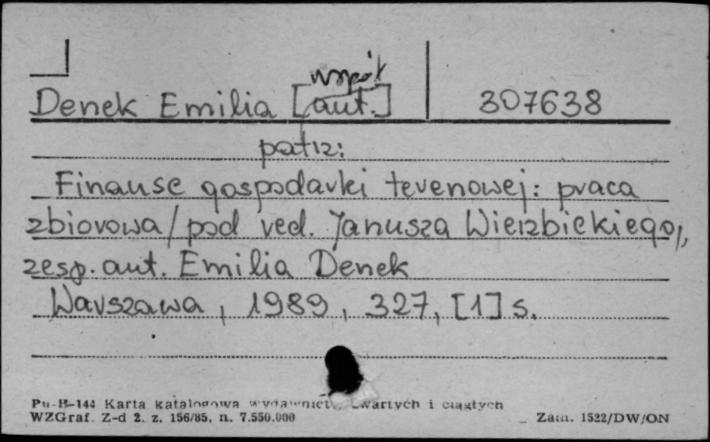 współ
Denek Emilia [aut.] 307638
patrz:
Finanse gospodarki terenowej: praca
zbiorowa / pod red. Janusza Wierzbickiego,
zesp. aut. Emilia Denek
Warszawa, 1989, 327, [1] s.
Pu-B-144 Karta katalogowa wydawnictw zwartych i ciągłych
WZGraf. Z-d 2. z. 156/85, n. 7.550.000 Zam. 1522/DW/ON